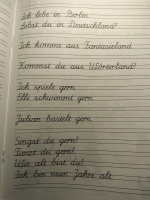 Ich lebe in Berlin
Lebst du in Deutschland?
Ich komme aus Fantasieland
Kommst du aus Wörterland?
Ich spiele gern
Elli schwimmt gern
Julian bastelt gern
Singst du gern?
Tanzt du gern?
Wie alt bist du?
Ich bin neun Jahre alt